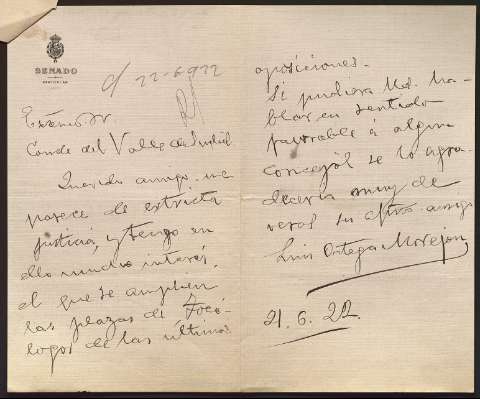 SENADO
PARTICULAR
c/ 22-6-922
Excmo Sr.
Conde del Valle de Súchil.
Querido amigo: me
parece de extricta
justicia, y tengo en
ello mucho interés,
el que se amplíen
las plazas de Tocó-
logos de las últimas
oposiciones.
Si pudiera Ud. ha-
blar en sentido
favorable á algún
Concejal se lo agra-
decería muy de
veras su afmo. amigo
Luis Ortega Morejon
21. 6. 22.